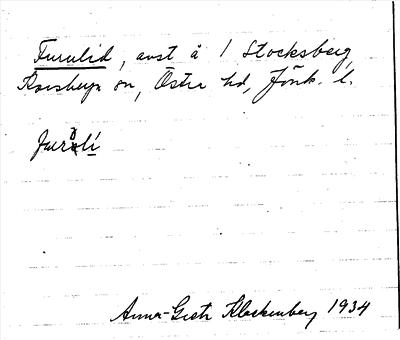 Furulid, avst å 1 Stocksberg,
Korsberga sn, Östra hd, Jönk. l.
Anna-Greta Klackenberg 1934